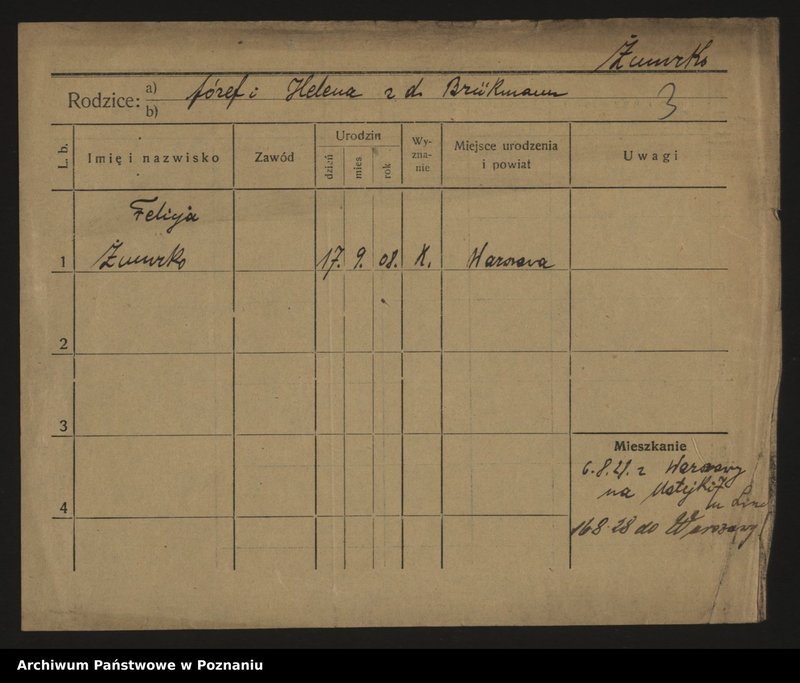 Żmurko
Rodzice: a) Józef i Helena z d. Brükmann
b)
3
L. b.
Imię i nazwisko
Zawód
Urodzin
dzień
mies
rok
Wy-
zna-
nie
Miejsce urodzenia
i powiat
Uwagi
Felicja
1 Żmurko 17. 9. 08. K. Warszawa
2
3
Mieszkanie
6.8.28. z Warszawy
na Matejki
4
16 8 28 do Warszawy
Archiwum Państwowe w Poznaniu